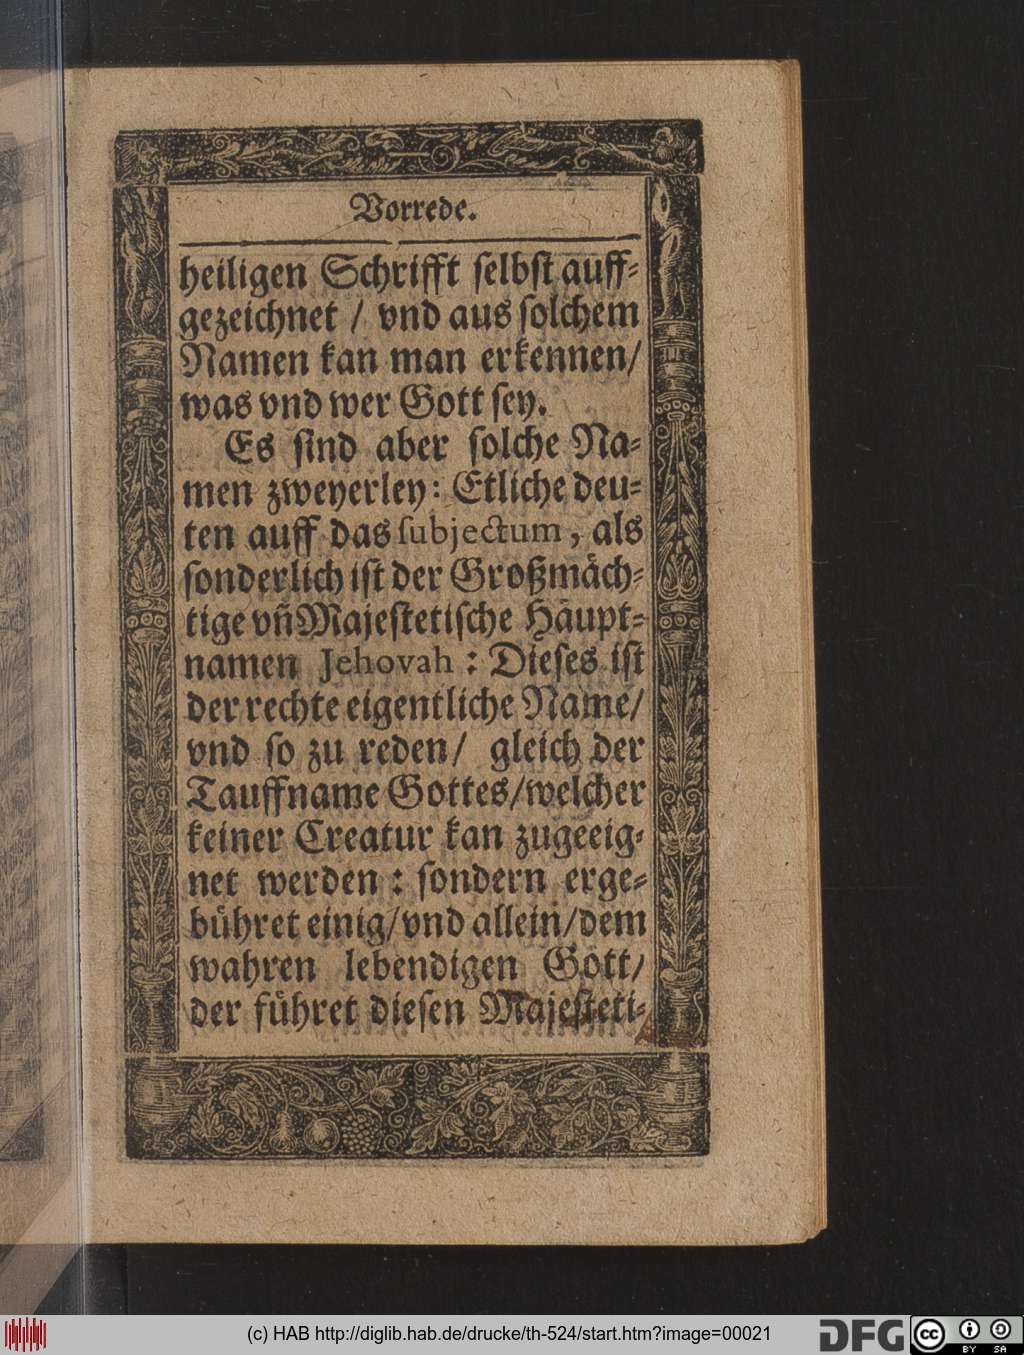 Vorrede.
heiligen Schrifft selbst auff-
gezeichnet / vnd aus solchem
Namen kan man erkennen/
was vnd wer Gott sey.
Es sind aber solche Na-
men zweyerley: Etliche deu-
ten auff das subjectum, als
sonderlich ist der Großmäch-
tige vñ Majestetische Häupt-
namen Jehovah : Dieses ist
der rechte eigentliche Name/
vnd so zu reden/ gleich der
Tauffname Gottes/welcher
keiner Creatur kan zugeeig-
net werden : sondern erge-
bühret einig/vnd allein/dem
wahren lebendigen Gott/
der führet diesen Majesteti-
(c) HAB http://diglib.hab.de/drucke/th-524/start.htm?image=00021
DFG
cc
BY SA